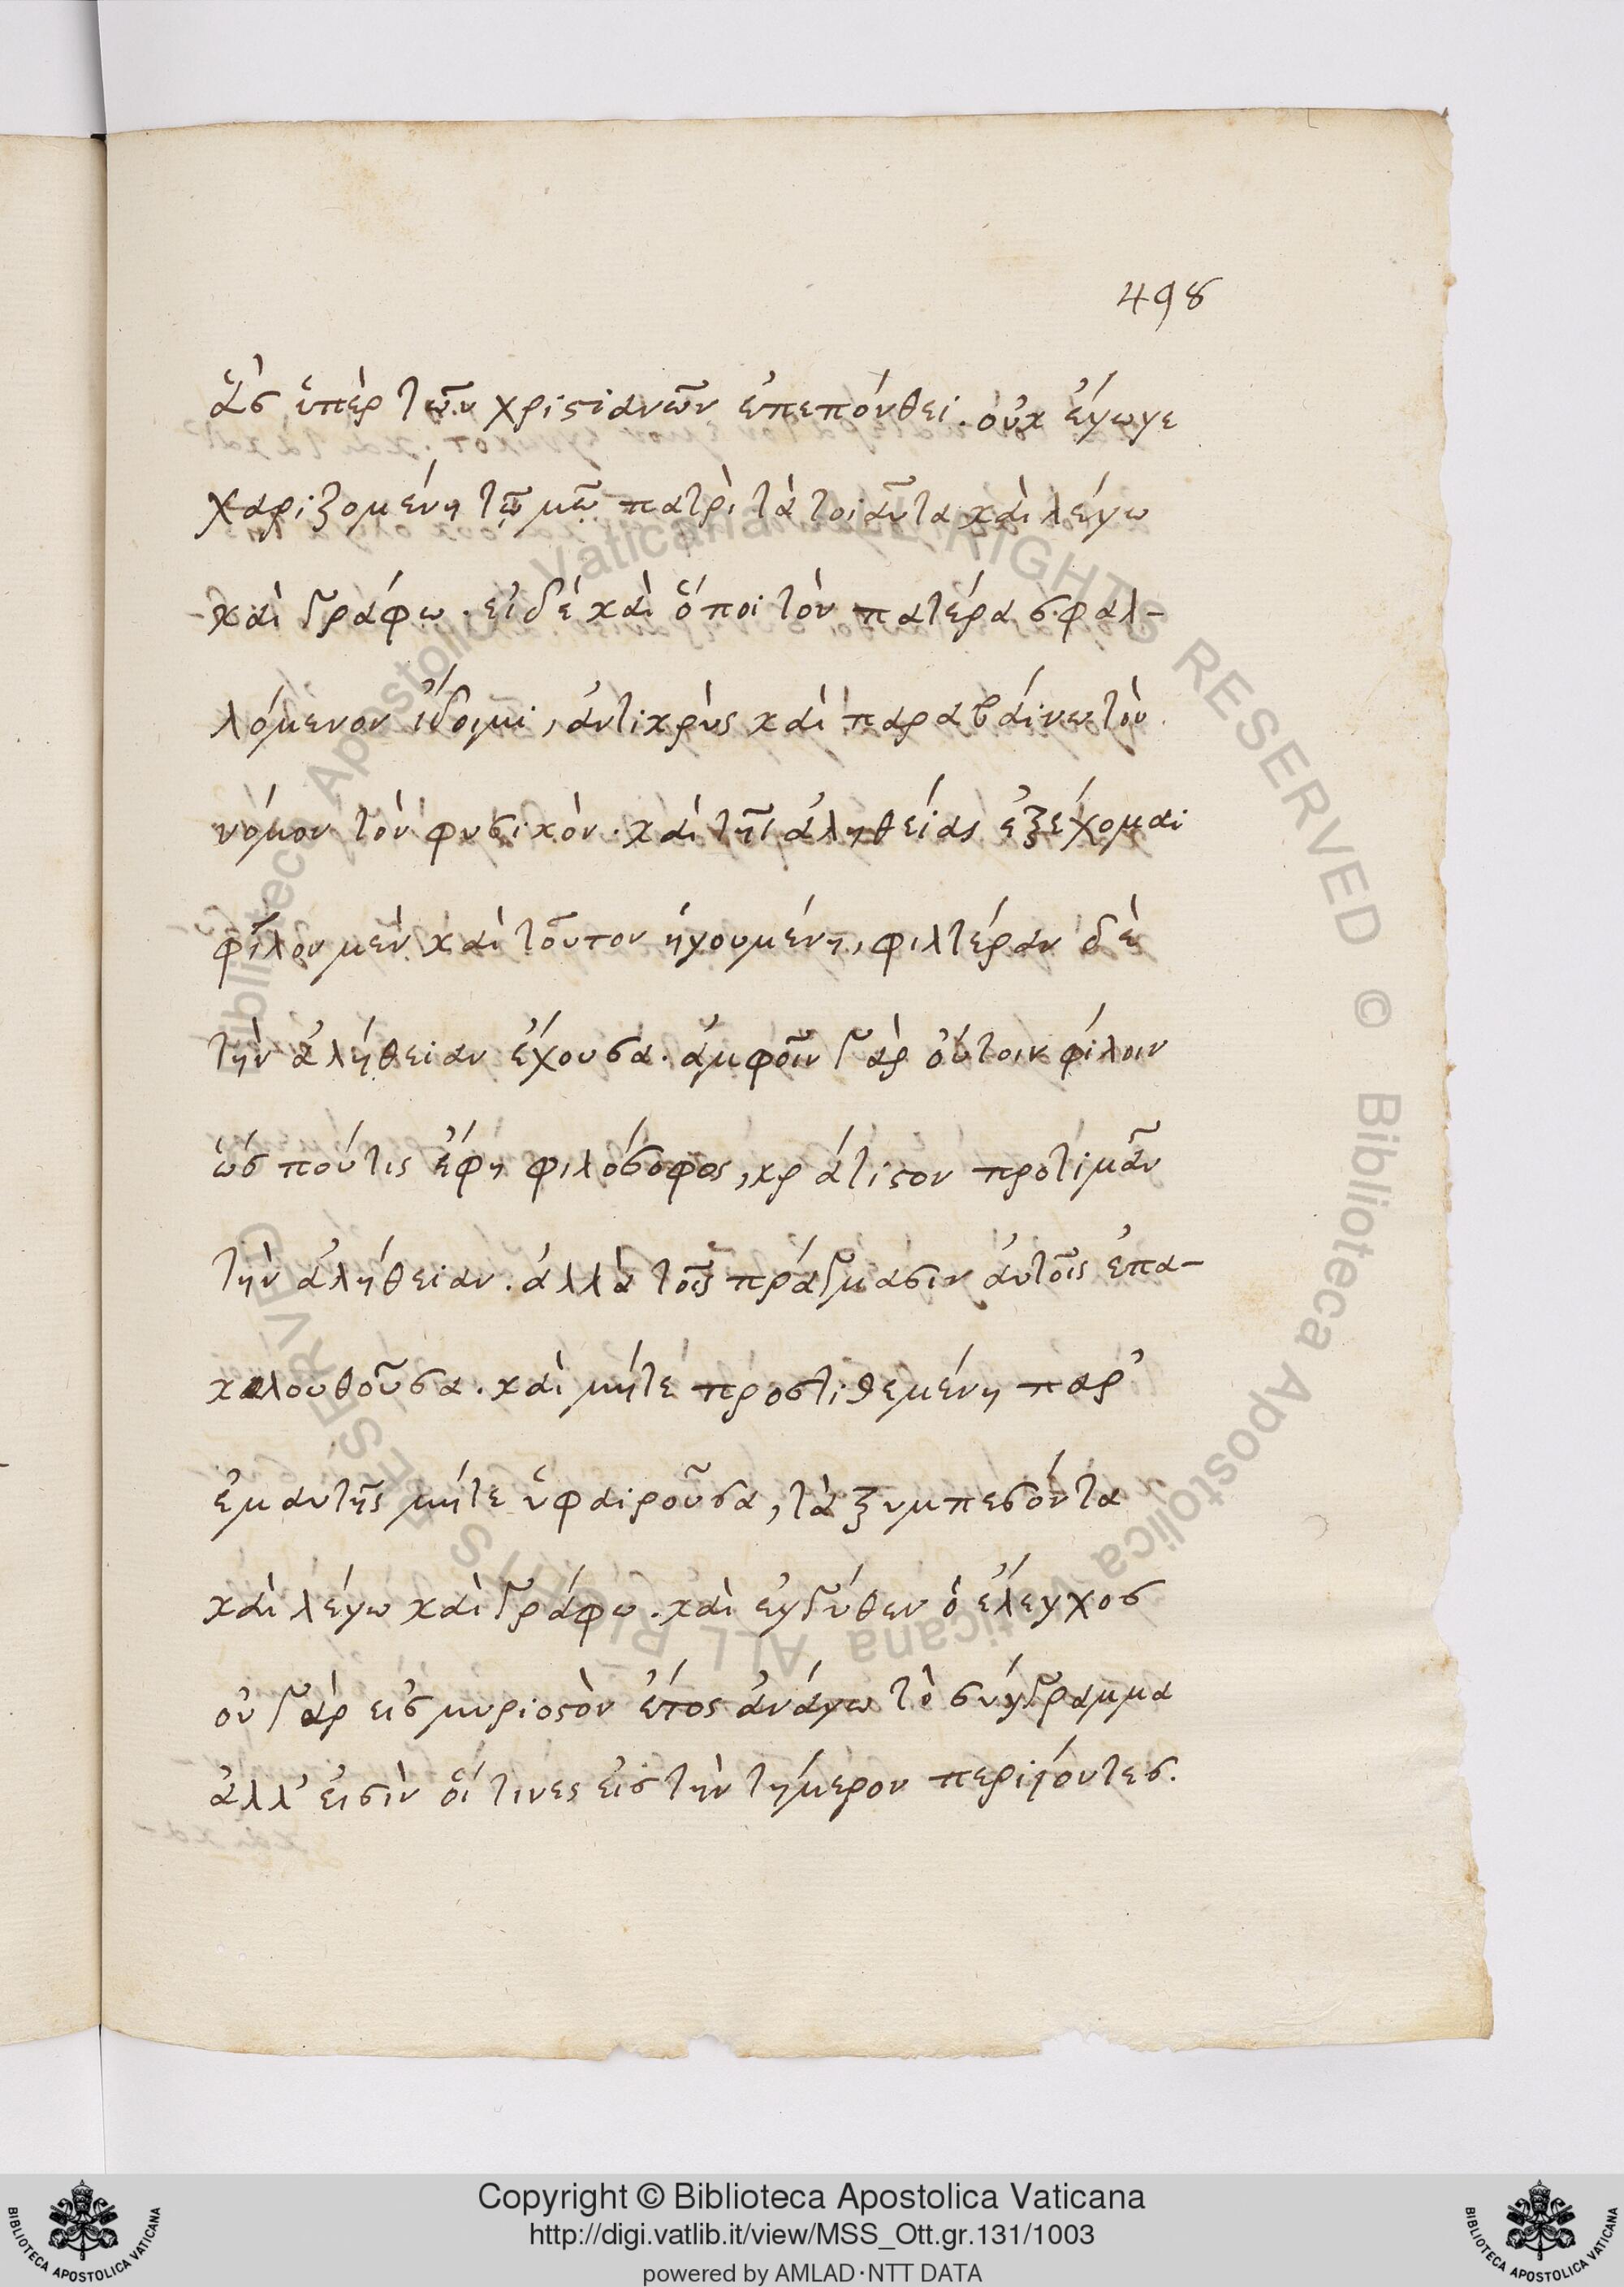 498
ἃς ὑπὲρ τῶν χριστιανῶν ἐπεπόνθει. οὐκ ἔγωγε
χαριζομένη τῷ μῷ πατρὶ τὰ τοιαῦτα καὶ λέγω
καὶ γράφω. εἰ δὲ καὶ ὅποι τὸν πατέρα σφαλ-
λόμενον ἴδοιμι, ἀντικρὺς καὶ παραβαίνω τὸν
νόμον τὸν φυσικὸν. καὶ τῆς ἀληθείας ἐξέχομαι
φίλον μὲν καὶ τοῦτον ἡγουμένη, φιλτέραν δὲ
τὴν ἀλήθειαν ἔχουσα. ἀμφοῖν γὰρ ὄντοιν φίλοιν
ὥς πού τις ἔφη φιλόσοφος, κράτιστον προτιμᾶν
τὴν ἀλήθειαν. ἀλλὰ τοῖς πράγμασιν αὐτοῖς ἐπα-
κολουθοῦσα. καὶ μήτε προστιθεμένη παρ'
ἐμαυτῆς μήτε ὑφαιροῦσα, τὰ ξυμπεσόντα
καὶ λέγω καὶ γράφω. καὶ ἐγγύθεν ὁ ἔλεγχος
οὐ γὰρ εἰς μυριοστὸν ἔτος ἀνάγω τὸ σύγγραμμα
ἀλλ' εἰσὶν οἵ τινες εἰς τὴν τήμερον περιιόντες.
Biblioteca Apostolica Vaticana ALL RIGHTS RESERVED © Biblioteca Apostolica Vaticana ALL RIGHTS RESERVED
Copyright © Biblioteca Apostolica Vaticana
http://digi.vatlib.it/view/MSS_Ott.gr.131/1003
powered by AMLAD·NTT DATA
BIBLIOTECA APOSTOLICA VATICANA
BIBLIOTECA APOSTOLICA VATICANA